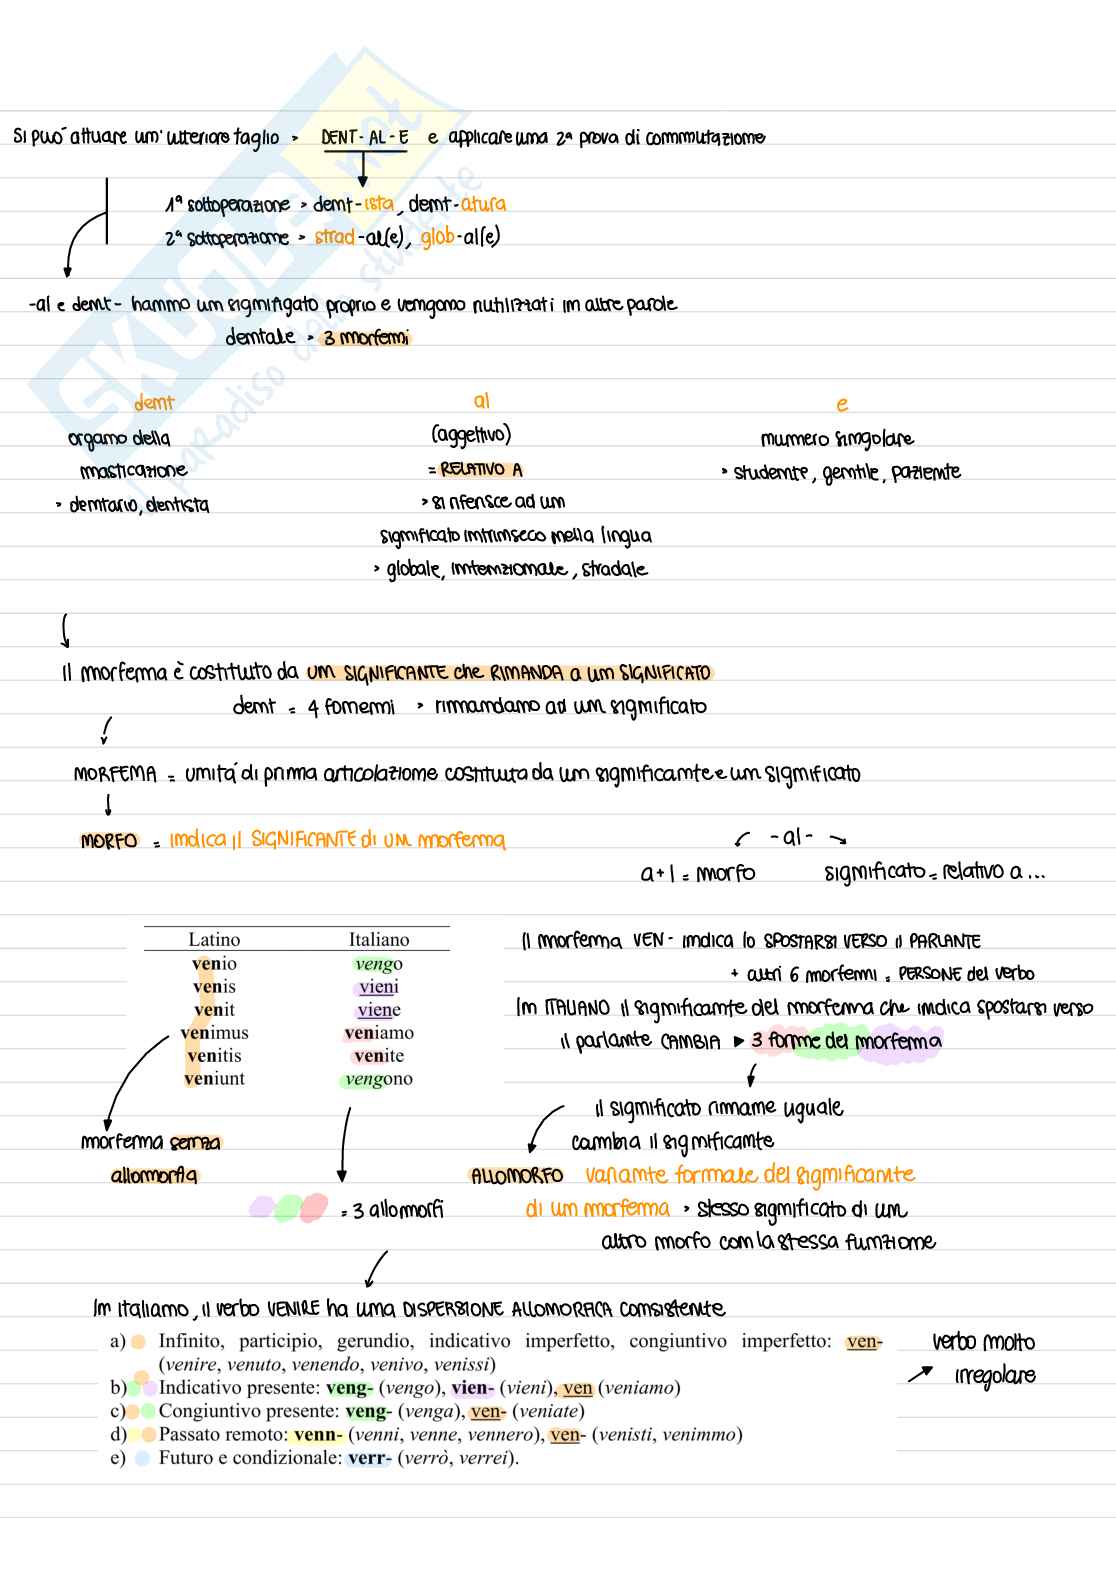 SKUOLA.not
paradiso dello studente
Si può attuare un'ulteriore taglio > DENT-AL-E e applicare una 2ª prova di commutazione
1ª sottoperazione > dent-ista, dent-atura
2ª sottoperazione > strad-al(e), glob-al(e)
-al e dent- hanno un significato proprio e vengono riutilizzati in altre parole
dentale > 3 morfemi
dent al e
organo della (aggettivo) numero singolare
masticazione = RELATIVO A > studente, gentile, paziente
> dentario, dentista > si riferisce ad un
significato intrinseco nella lingua
> globale, intenzionale, stradale
Il morfema è costituito da UN SIGNIFICANTE che RIMANDA a un SIGNIFICATO
dent = 4 fonemi > rimandano ad un significato
MORFEMA = unità di prima articolazione costituita da un significante e un significato
MORFO = indica il SIGNIFICANTE di UN morfema
-al-
a+l = morfo significato = relativo a ...
Latino Italiano
venio vengo
venis vieni
venit viene
venimus veniamo
venitis venite
veniunt vengono
morfema senza
allomorfia
= 3 allomorfi
Il morfema VEN- indica lo SPOSTARSI VERSO il PARLANTE
+ altri 6 morfemi = PERSONE del verbo
In ITALIANO il significante del morfema che indica spostarsi verso
il parlante CAMBIA ▶ 3 forme del morfema
il significato rimane uguale
cambia il significante
ALLOMORFO variante formale del significante
di un morfema > stesso significato di un
altro morfo con la stessa funzione
In Italiano, il verbo VENIRE ha una DISPERSIONE ALLOMORFICA consistente
a) Infinito, participio, gerundio, indicativo imperfetto, congiuntivo imperfetto: ven-
(venire, venuto, venendo, venivo, venissi)
b) Indicativo presente: veng- (vengo), vien- (vieni), ven (veniamo)
c) Congiuntivo presente: veng- (venga), ven- (veniate)
d) Passato remoto: venn- (venni, venne, vennero), ven- (venisti, venimmo)
e) Futuro e condizionale: verr- (verrò, verrei).
verbo molto
irregolare